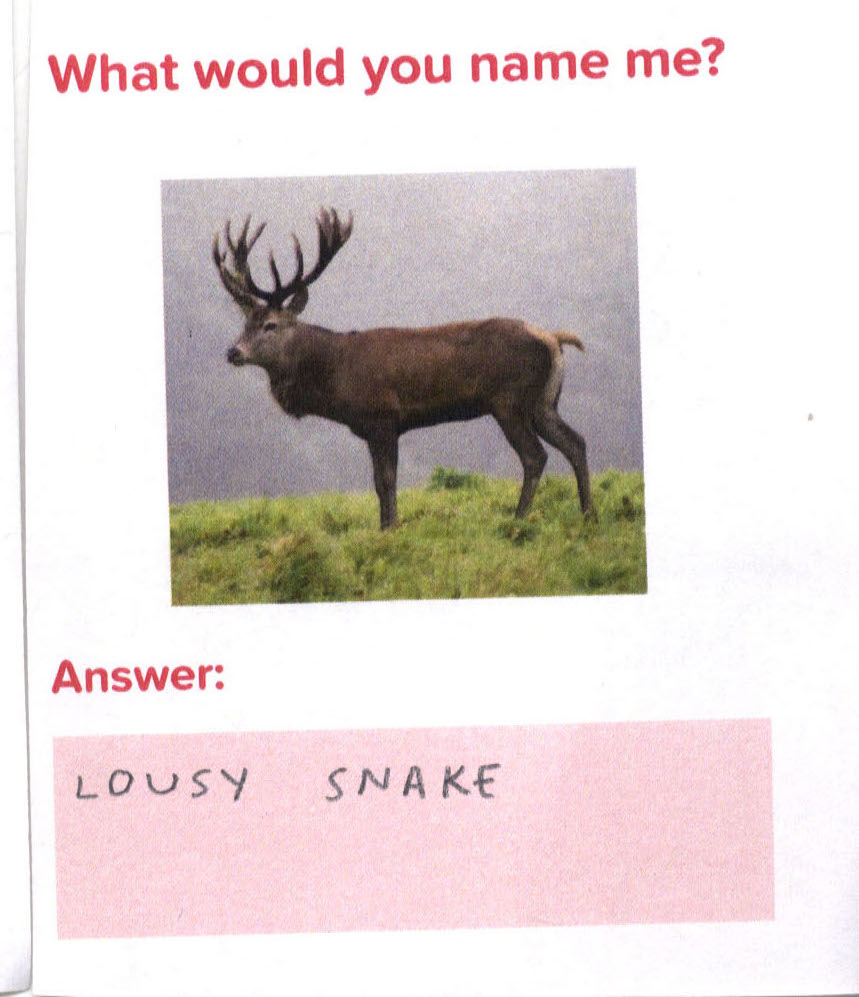 What would you name me?
Answer:
LOUSY SNAKE